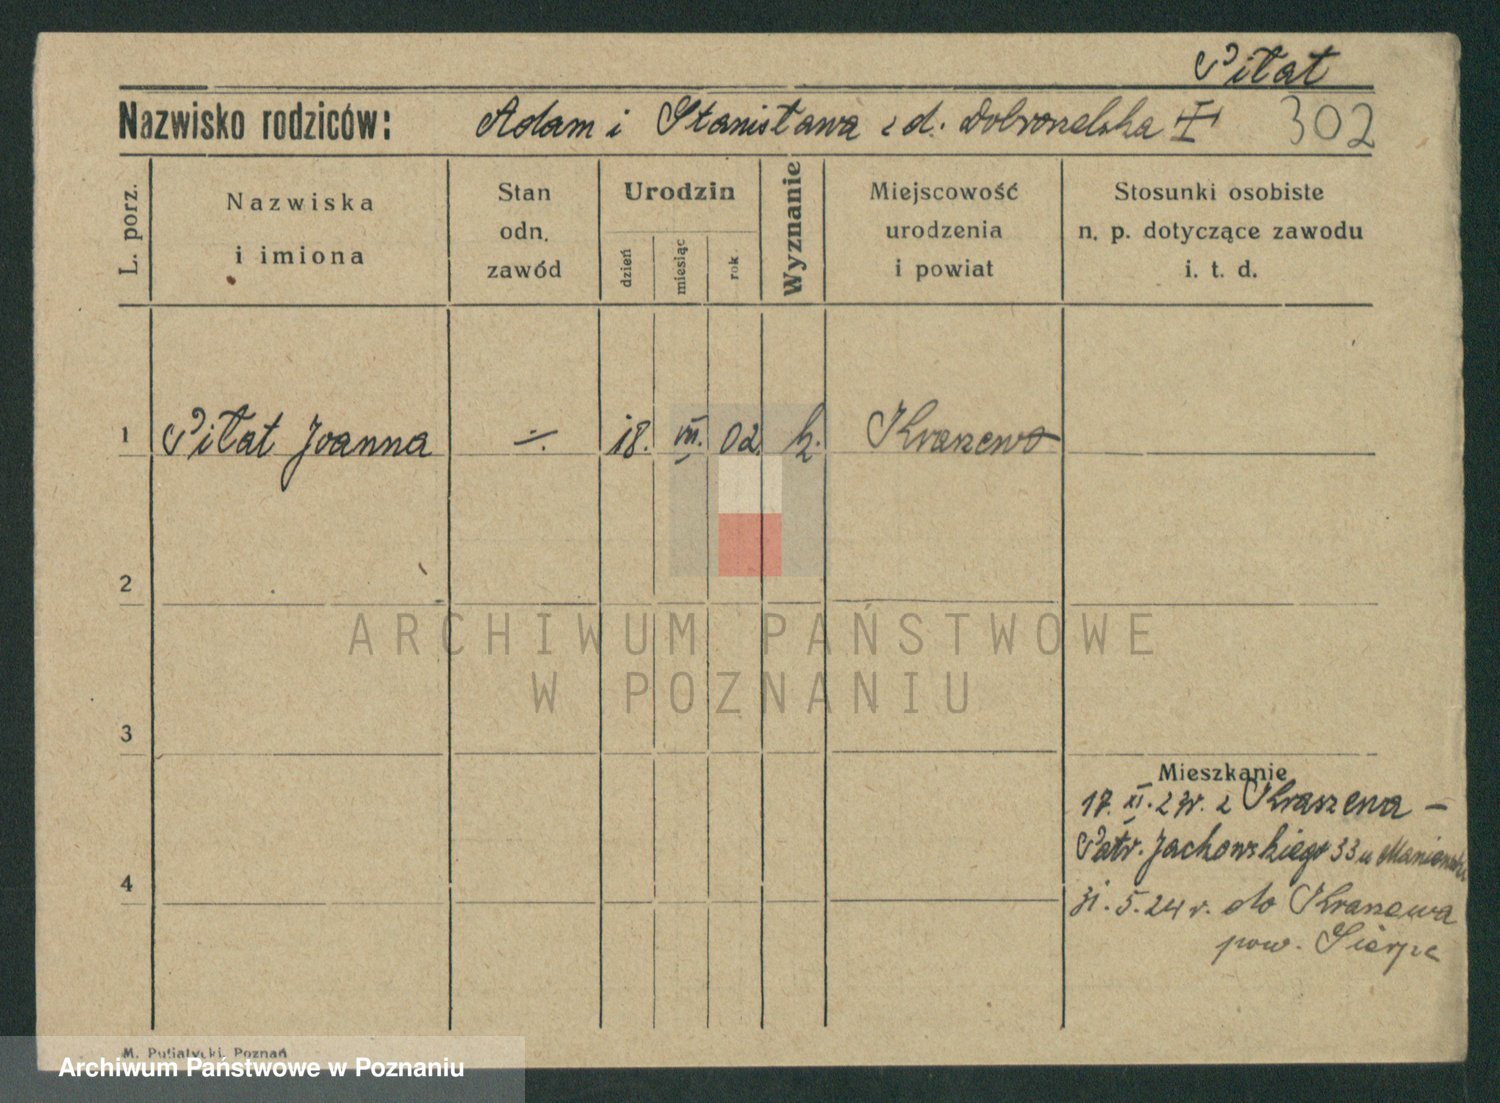 Piłat
Nazwisko rodziców: Adam i Stanisława z d. Dobrosielska 302
L. porz.
Nazwiska
i imiona
Stan
odn.
zawód
Urodzin
dzień
miesiąc
rok.
Wyznanie
Miejscowość
urodzenia
i powiat
Stosunki osobiste
n. p. dotyczące zawodu
i. t. d.
1 Piłat Joanna ÷. 18. VII. 02 k. Kraszewo
2
3
4
Mieszkanie
17. XI. 23r. z Kraszewa –
Patr. Jackowskiego 33 u
31. 5. 24 r. do Kraszewa
pow. Sierpc
M. Putiatycki, Poznań
ARCHIWUM PAŃSTWOWE
W POZNANIU
Archiwum Państwowe w Poznaniu